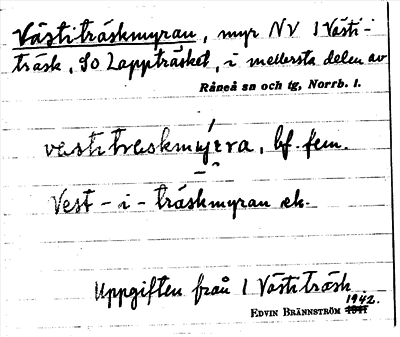 Västiträskmyran, myr NV I Västi-
träsk, SO Lappträsket, i mellersta delen av
Råneå sn och tg, Norrb. l.
västitraskmyrra, bf. fem.
Vest-i-träskmyran ek.
Uppgiften från I Västiträsk
1942.
EDVIN BRÄNNSTRÖM 1941